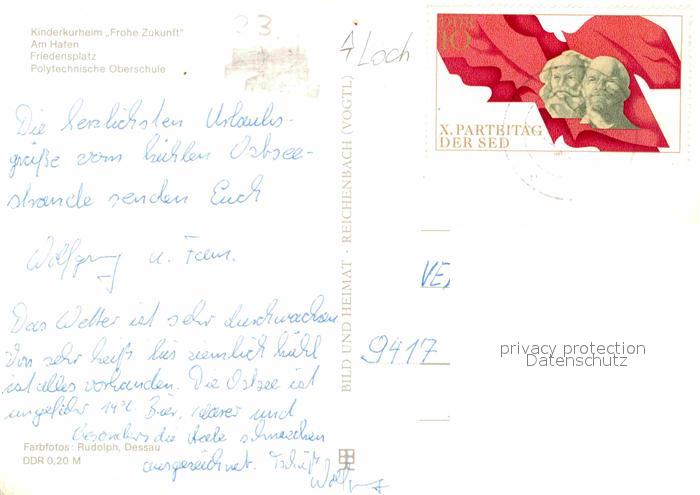 Kinderkurheim „Frohe Zukunft"
Am Hafen
Friedensplatz
Polytechnische Oberschule
23
4 Loch
DDR
10
X. PARTEITAG
DER SED
Die herzlichsten Urlaubs-
grüße vom kühlen Ostsee-
strande senden Euch
Wolfgang u. Fam.
Das Wetter ist sehr durchwachsen
Von sehr heiß bis ziemlich kühl
ist alles vorhanden. Die Ostsee ist
ungefähr 14°C. Bier, klarer und
besonders die Aale schmecken
ausgezeichnet. Tschüß
Wolfgang
Farbfotos: Rudolph, Dessau
DDR 0,20 M
BILD UND HEIMAT · REICHENBACH (VOGTL)
9417
privacy protection
Datenschutz